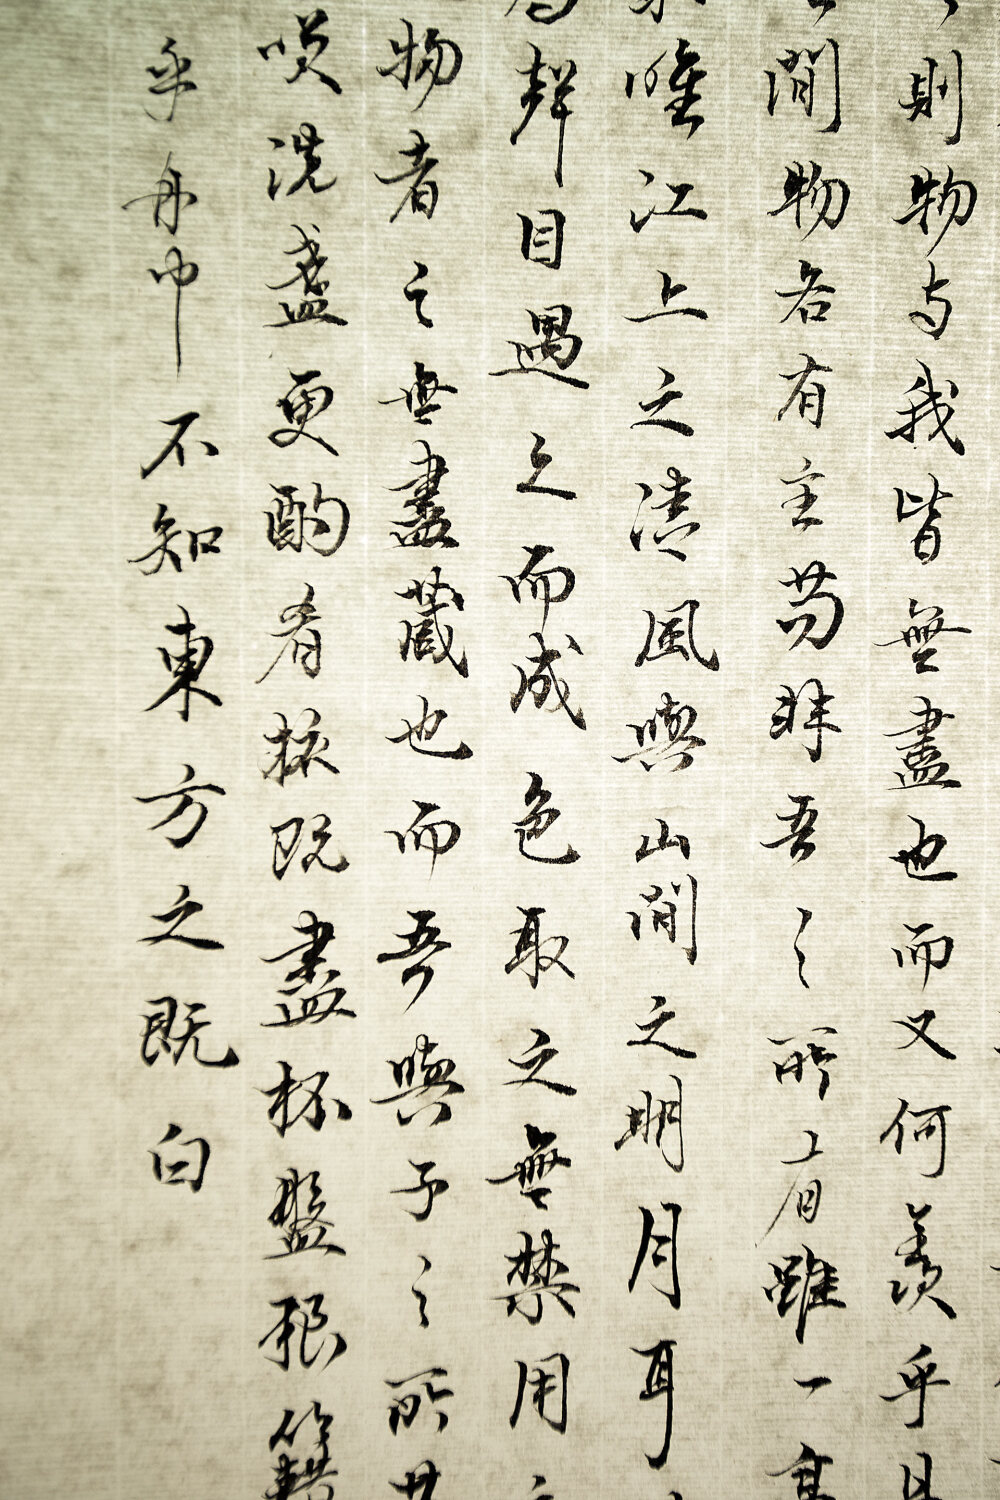 則物与我皆無盡也而又何羨乎且
間物各有主苟非吾之所有雖一毫
唯江上之清風與山間之明月耳
為聲目遇之而成色取之無禁用之
物者之無盡藏也而吾與子之所共
咲洗盞更酌肴核既盡杯盤狼籍
乎舟中不知東方之既白